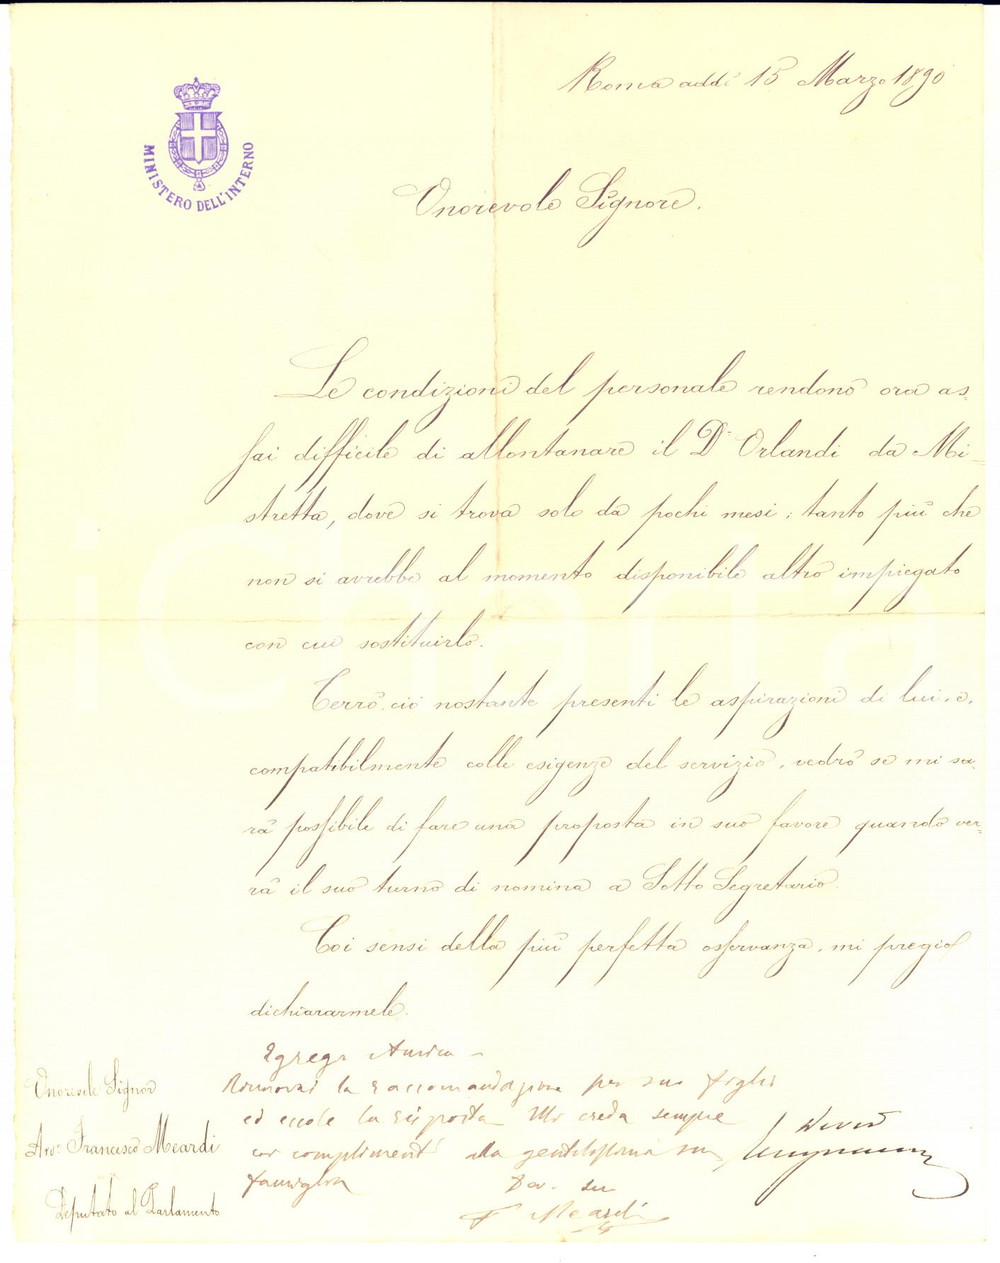 Roma addì 15 Marzo 1890
MINISTERO DELL'INTERNO
Onorevole Signore.
Le condizioni del personale rendono ora as-
sai difficile di allontanare il Dr Orlandi da Mi-
stretta, dove si trova solo da pochi mesi; tanto più che
non si avrebbe al momento disponibile altro impiegato
con cui sostituirlo.
Terrò ciò nostante presenti le aspirazioni di lui, e,
compatibilmente colle esigenze del servizio, vedrò se mi sa-
rà possibile di fare una proposta in suo favore quando ver-
rà il suo turno di nomina a Sotto Segretario.
Coi sensi della più perfetta osservanza, mi pregio
dichiararmele.
Egregio Amico -
Rinnovai la raccomandazione per suo figlio
ed eccole la risposta Mi creda sempre
coi complimenti alla gentilissima sua
famiglia
Dev. suo
F Meardi
Onorevole Signor
Avv. Francesco Meardi
Deputato al Parlamento
iCharta